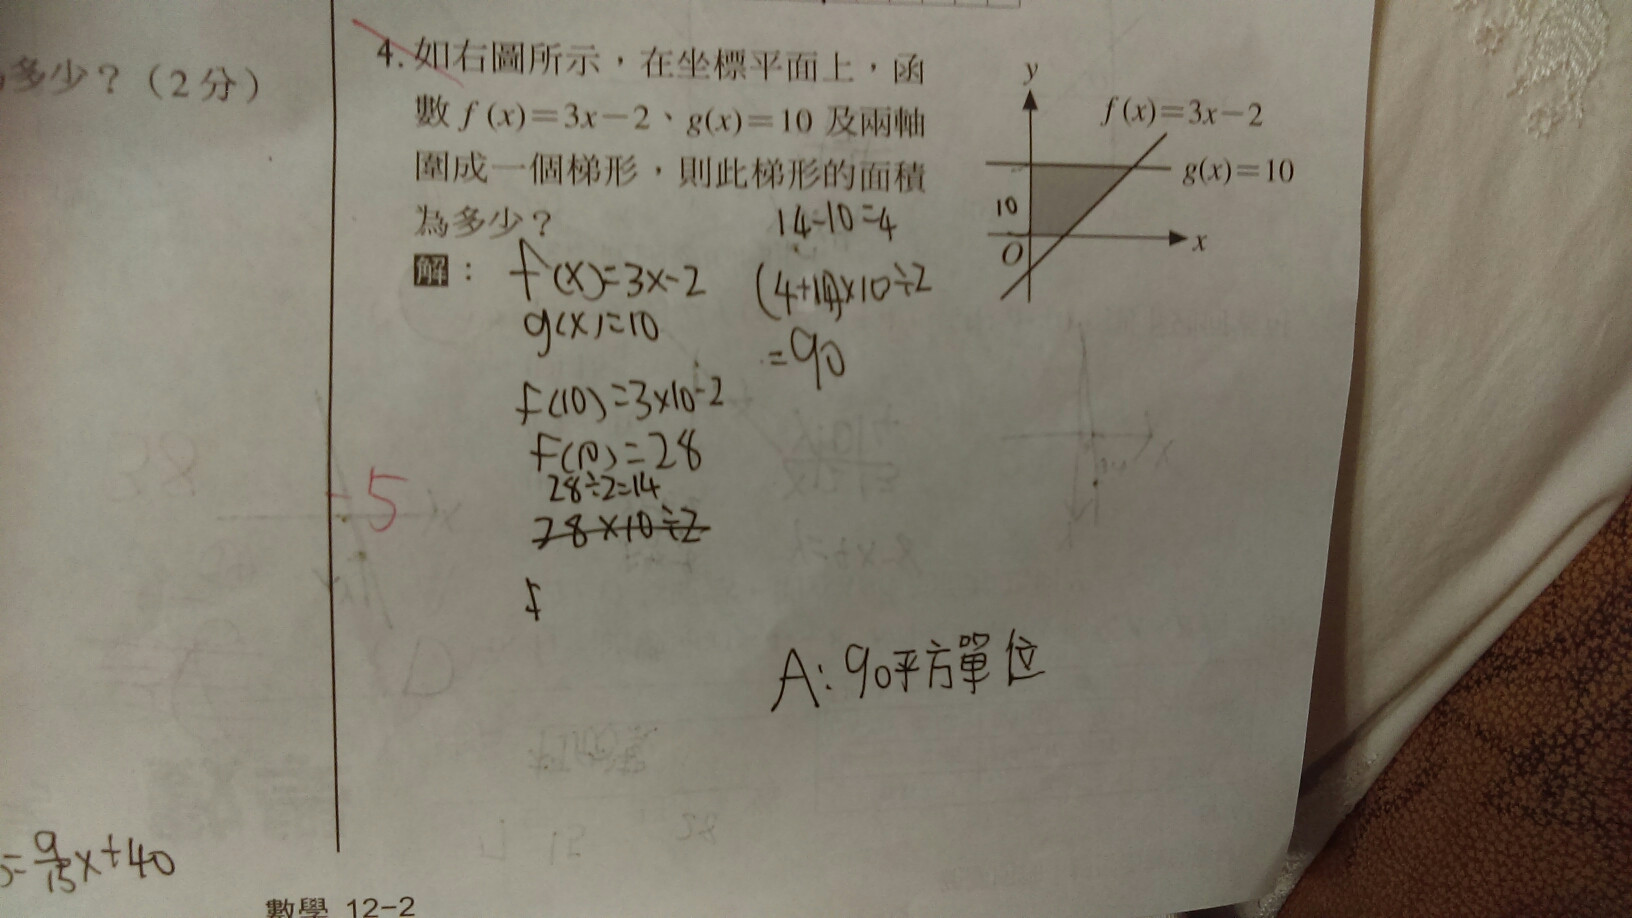 多少？（2分）
4. 如右圖所示，在坐標平面上，函
數 f (x)=3x−2、g(x)=10 及兩軸
圍成一個梯形，則此梯形的面積
為多少？
y
f (x)=3x−2
g(x)=10
10
O
x
解：
f(x)=3x-2
g(x)=10
f(10)=3×10-2
f(10)=28
28÷2=14
28×10÷2
f
14-10=4
(4+14)×10÷2
=90
-5
A: 90平方單位
=9/15x+40
數學 12−2